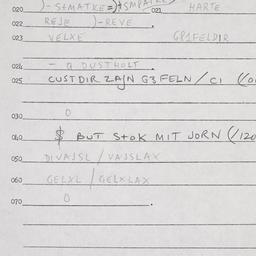 020 )-STMATKE=)
021 HARTE
022 REJE )-REVE
023 VELXE GP1FELDIR
024 - Q DUSTHOLT
025 CUSTDIR ZAJN G3 FELN / CI
030 0
040 $ BUT STOK MIT JORN (/120
050 DIVAJSL / VAJSLAX
060 GELXL / GELXLAX
070 0